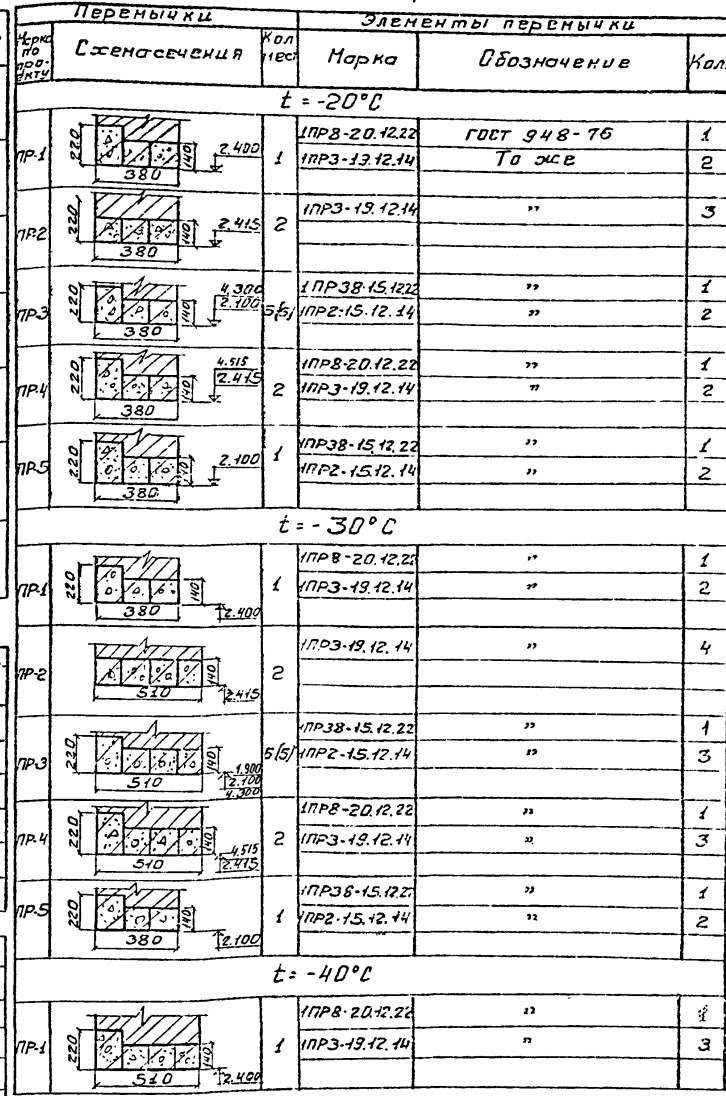 Перемычки
Элементы перемычки
Марка по проекту
Схема сечения
Кол. мест
Марка
Обозначение
Кол.
t = -20°C
ПР-1
220
380
140
2.400
1
1ПР8-20.12.22
ГОСТ 948-76
1
1ПР3-19.12.14
То же
2
ПР-2
220
380
140
2.415
2
1ПР3-19.12.14
"
3
ПР-3
220
380
140
4.300
2.100
5/5/
1ПР38-15.12.22
"
1
1ПР2-15.12.14
"
2
ПР-4
220
380
140
4.515
2.415
2
1ПР8-20.12.22
"
1
1ПР3-19.12.14
"
2
ПР-5
220
380
140
2.100
1
1ПР38-15.12.22
"
1
1ПР2-15.12.14
"
2
t = -30°C
ПР-1
220
380
140
2.400
1
1ПР8-20.12.22
"
1
1ПР3-19.12.14
"
2
ПР-2
510
140
2.415
2
1ПР3-19.12.14
"
4
ПР-3
220
510
140
1.900
2.100
4.300
5/5/
1ПР38-15.12.22
"
1
1ПР2-15.12.14
"
3
ПР-4
220
510
140
4.515
2.415
2
1ПР8-20.12.22
"
1
1ПР3-19.12.14
"
3
ПР-5
220
380
140
2.100
1
"
1
1ПР2-15.12.14
"
2
t = -40°C
ПР-1
220
510
140
2.400
1
1ПР8-20.12.22
"
1
1ПР3-19.12.14
"
3